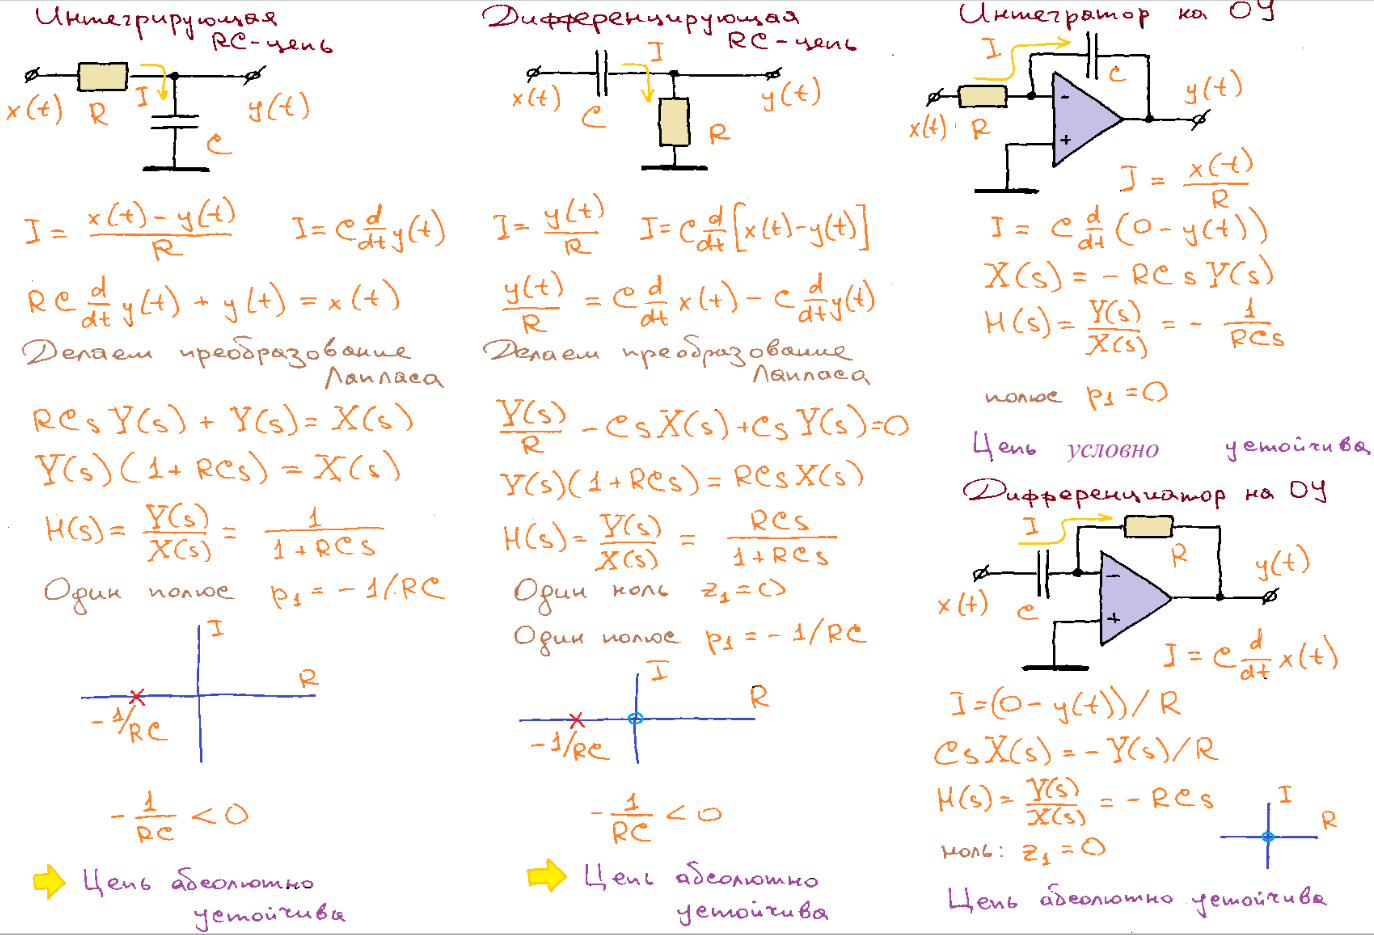 Интегрирующая
RC-цепь
x(t)
R
I
C
y(t)
I = (x(t) - y(t))/R
I = C d/dt y(t)
RC d/dt y(t) + y(t) = x(t)
Делаем преобразование
Лапласа
RCsY(s) + Y(s) = X(s)
Y(s)(1 + RCs) = X(s)
H(s) = Y(s)/X(s) = 1/(1 + RCs)
Один полюс p₁ = - 1/RC
I
R
-1/RC
- 1/RC < 0
Цепь абсолютно
устойчива
Дифференцирующая
RC-цепь
x(t)
C
I
R
y(t)
I = y(t)/R
I = C d/dt [x(t) - y(t)]
y(t)/R = C d/dt x(t) - C d/dt y(t)
Делаем преобразование
Лапласа
Y(s)/R - CsX(s) + CsY(s) = 0
Y(s)(1 + RCs) = RCsX(s)
H(s) = Y(s)/X(s) = RCs/(1 + RCs)
Один ноль z₁ = 0
Один полюс p₁ = - 1/RC
I
R
-1/RC
- 1/RC < 0
Цепь абсолютно
устойчива
Интегратор на ОУ
I
C
x(t)
R
-
+
y(t)
I = x(t)/R
I = C d/dt (0 - y(t))
X(s) = - RCsY(s)
H(s) = Y(s)/X(s) = - 1/RCs
полюс p₁ = 0
Цепь условно устойчива
Дифференциатор на ОУ
I
R
x(t)
C
-
+
y(t)
I = C d/dt x(t)
I = (0 - y(t))/R
CsX(s) = - Y(s)/R
H(s) = Y(s)/X(s) = - RCs
I
R
ноль: z₁ = 0
Цепь абсолютно устойчива